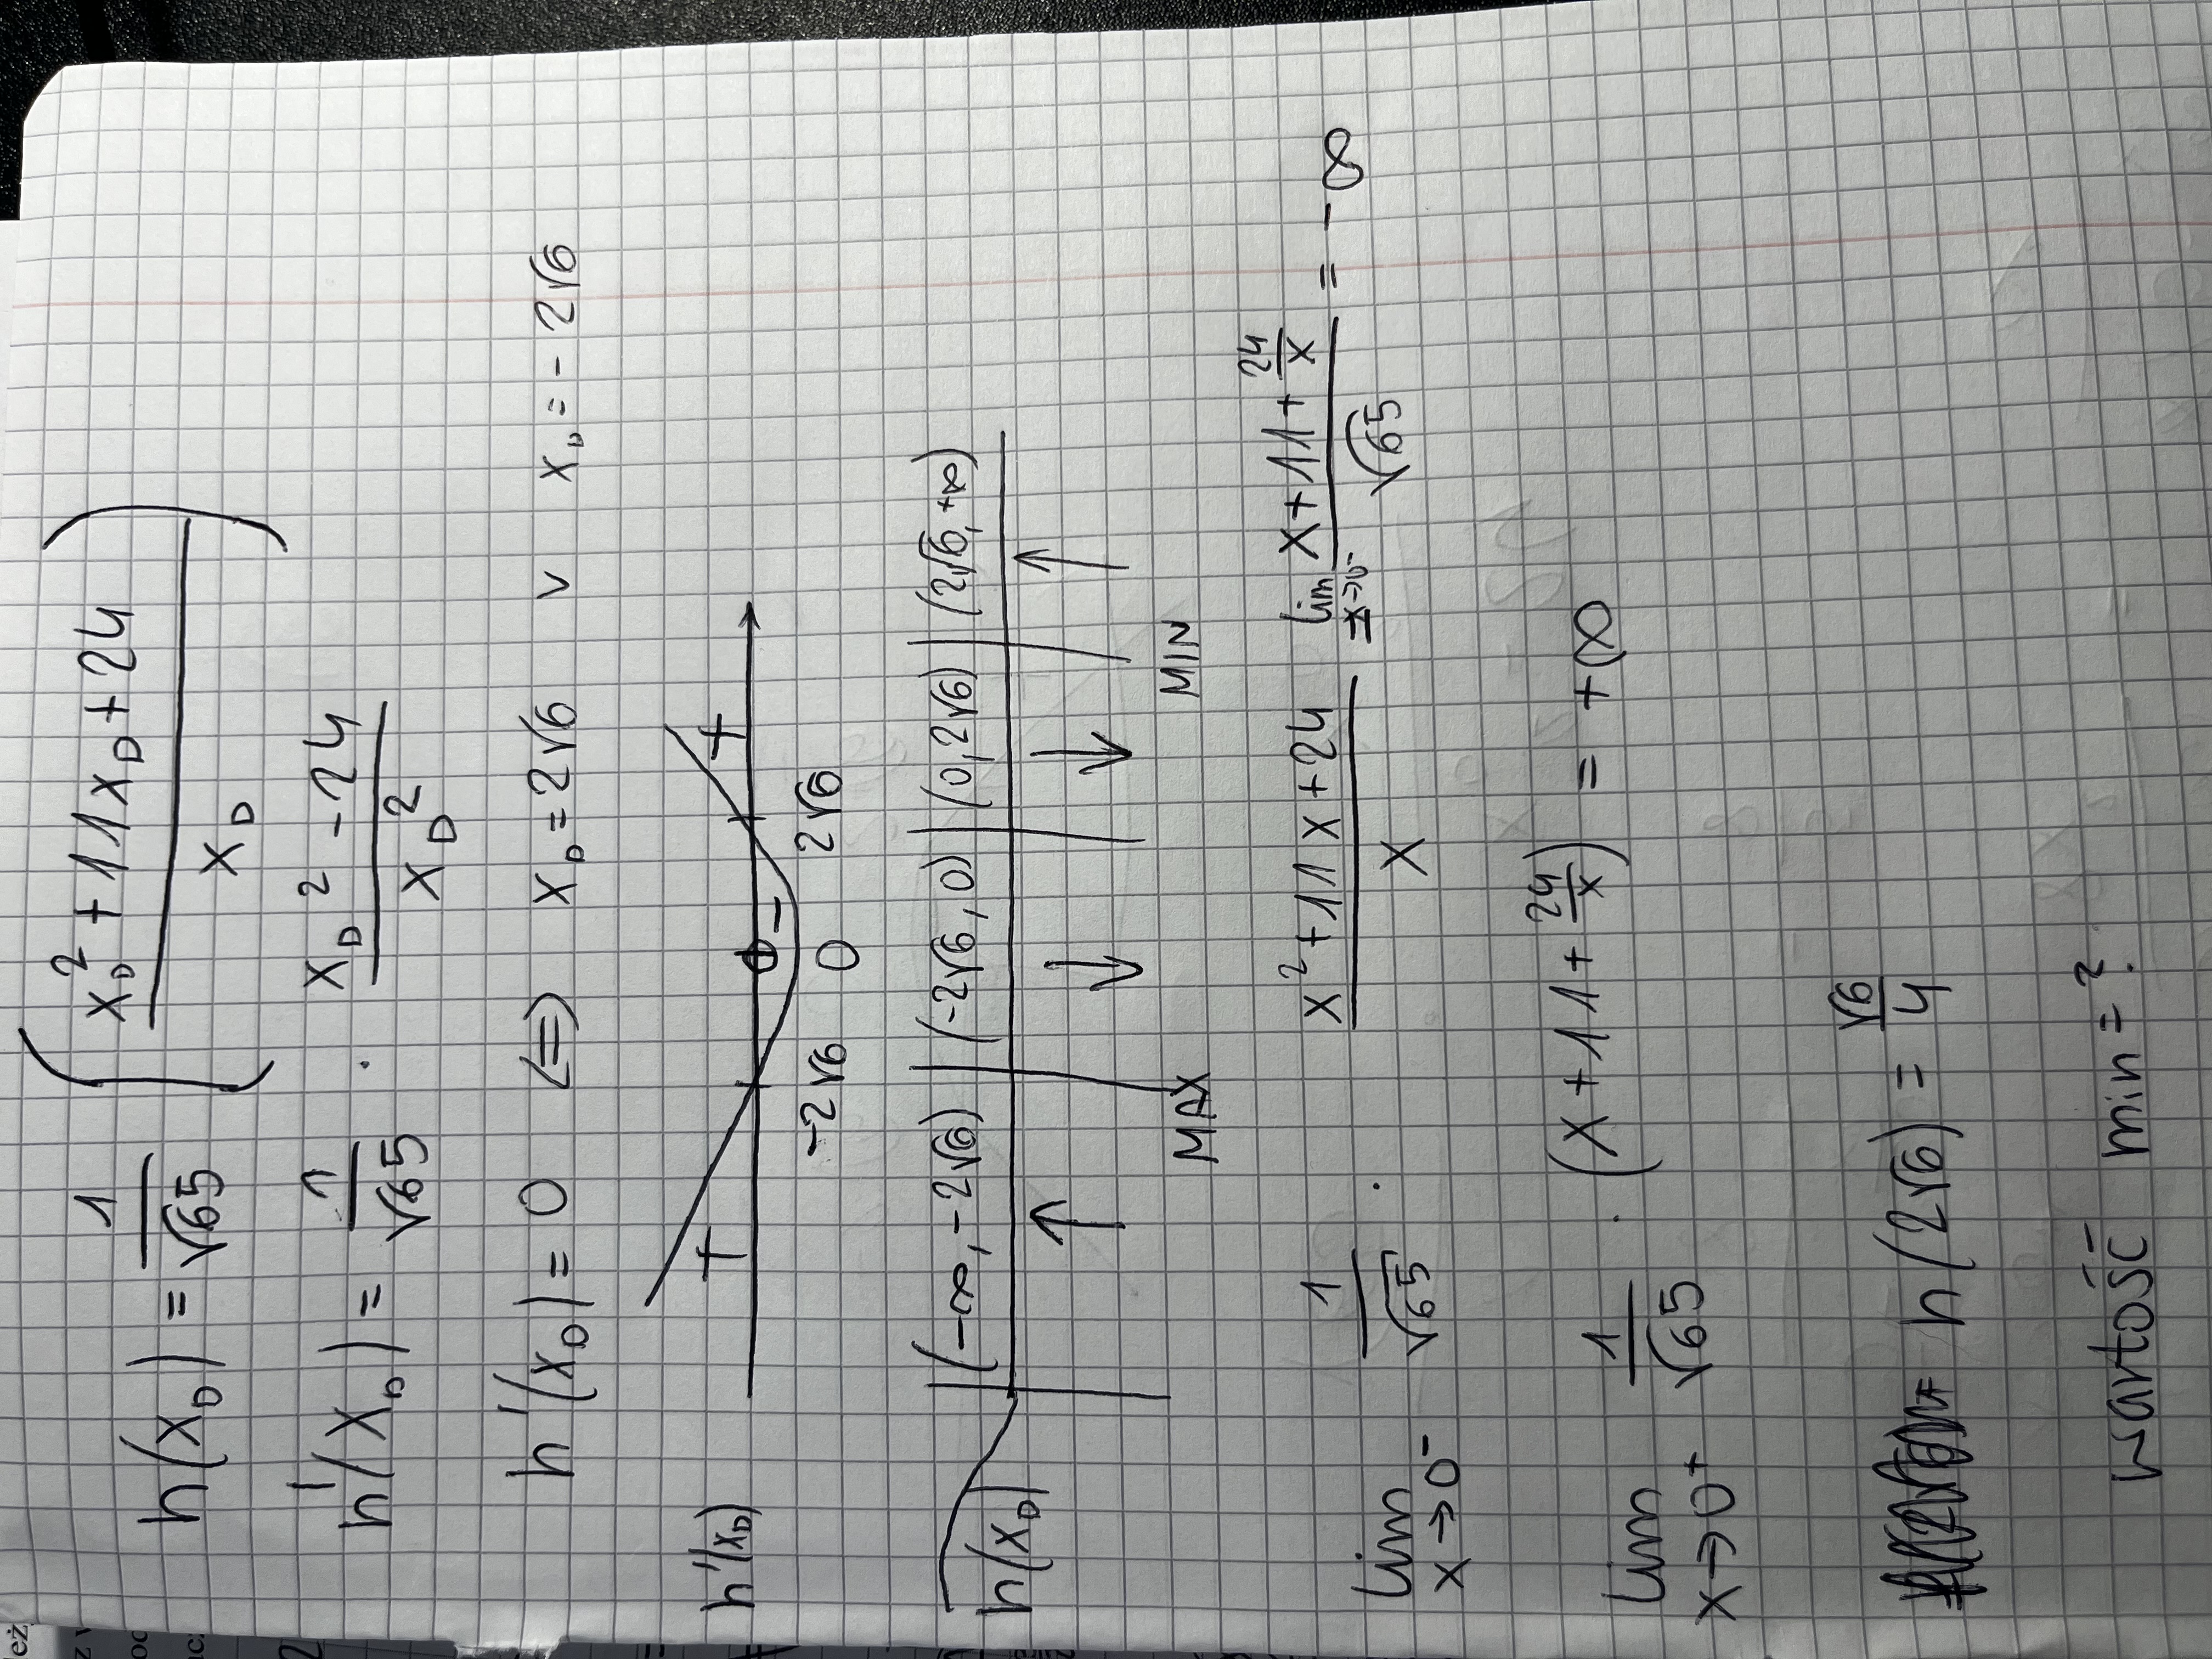 h(x_D) = 1/√65 ( (x_D² + 11x_D + 24)/x_D )
h'(x_D) = 1/√65 · (x_D² - 24)/x_D²
h'(x_D) = 0 <=> x_D = 2√6 v x_D = - 2√6
h'(x_D) + - +
-2√6 0 2√6
(-∞, -2√6) | (-2√6, 0) | (0, 2√6) | (2√6, +∞)
h(x_D) ↑ ↓ ↓ ↑
MAX MIN
lim x→0⁻ 1/√65 · (x² + 11x + 24)/x = lim x→0⁻ (x + 11 + 24/x)/√65 = - ∞
lim x→0⁺ 1/√65 · (x + 11 + 24/x) = +∞
h(2√6) = √6/4
wartość min = ?